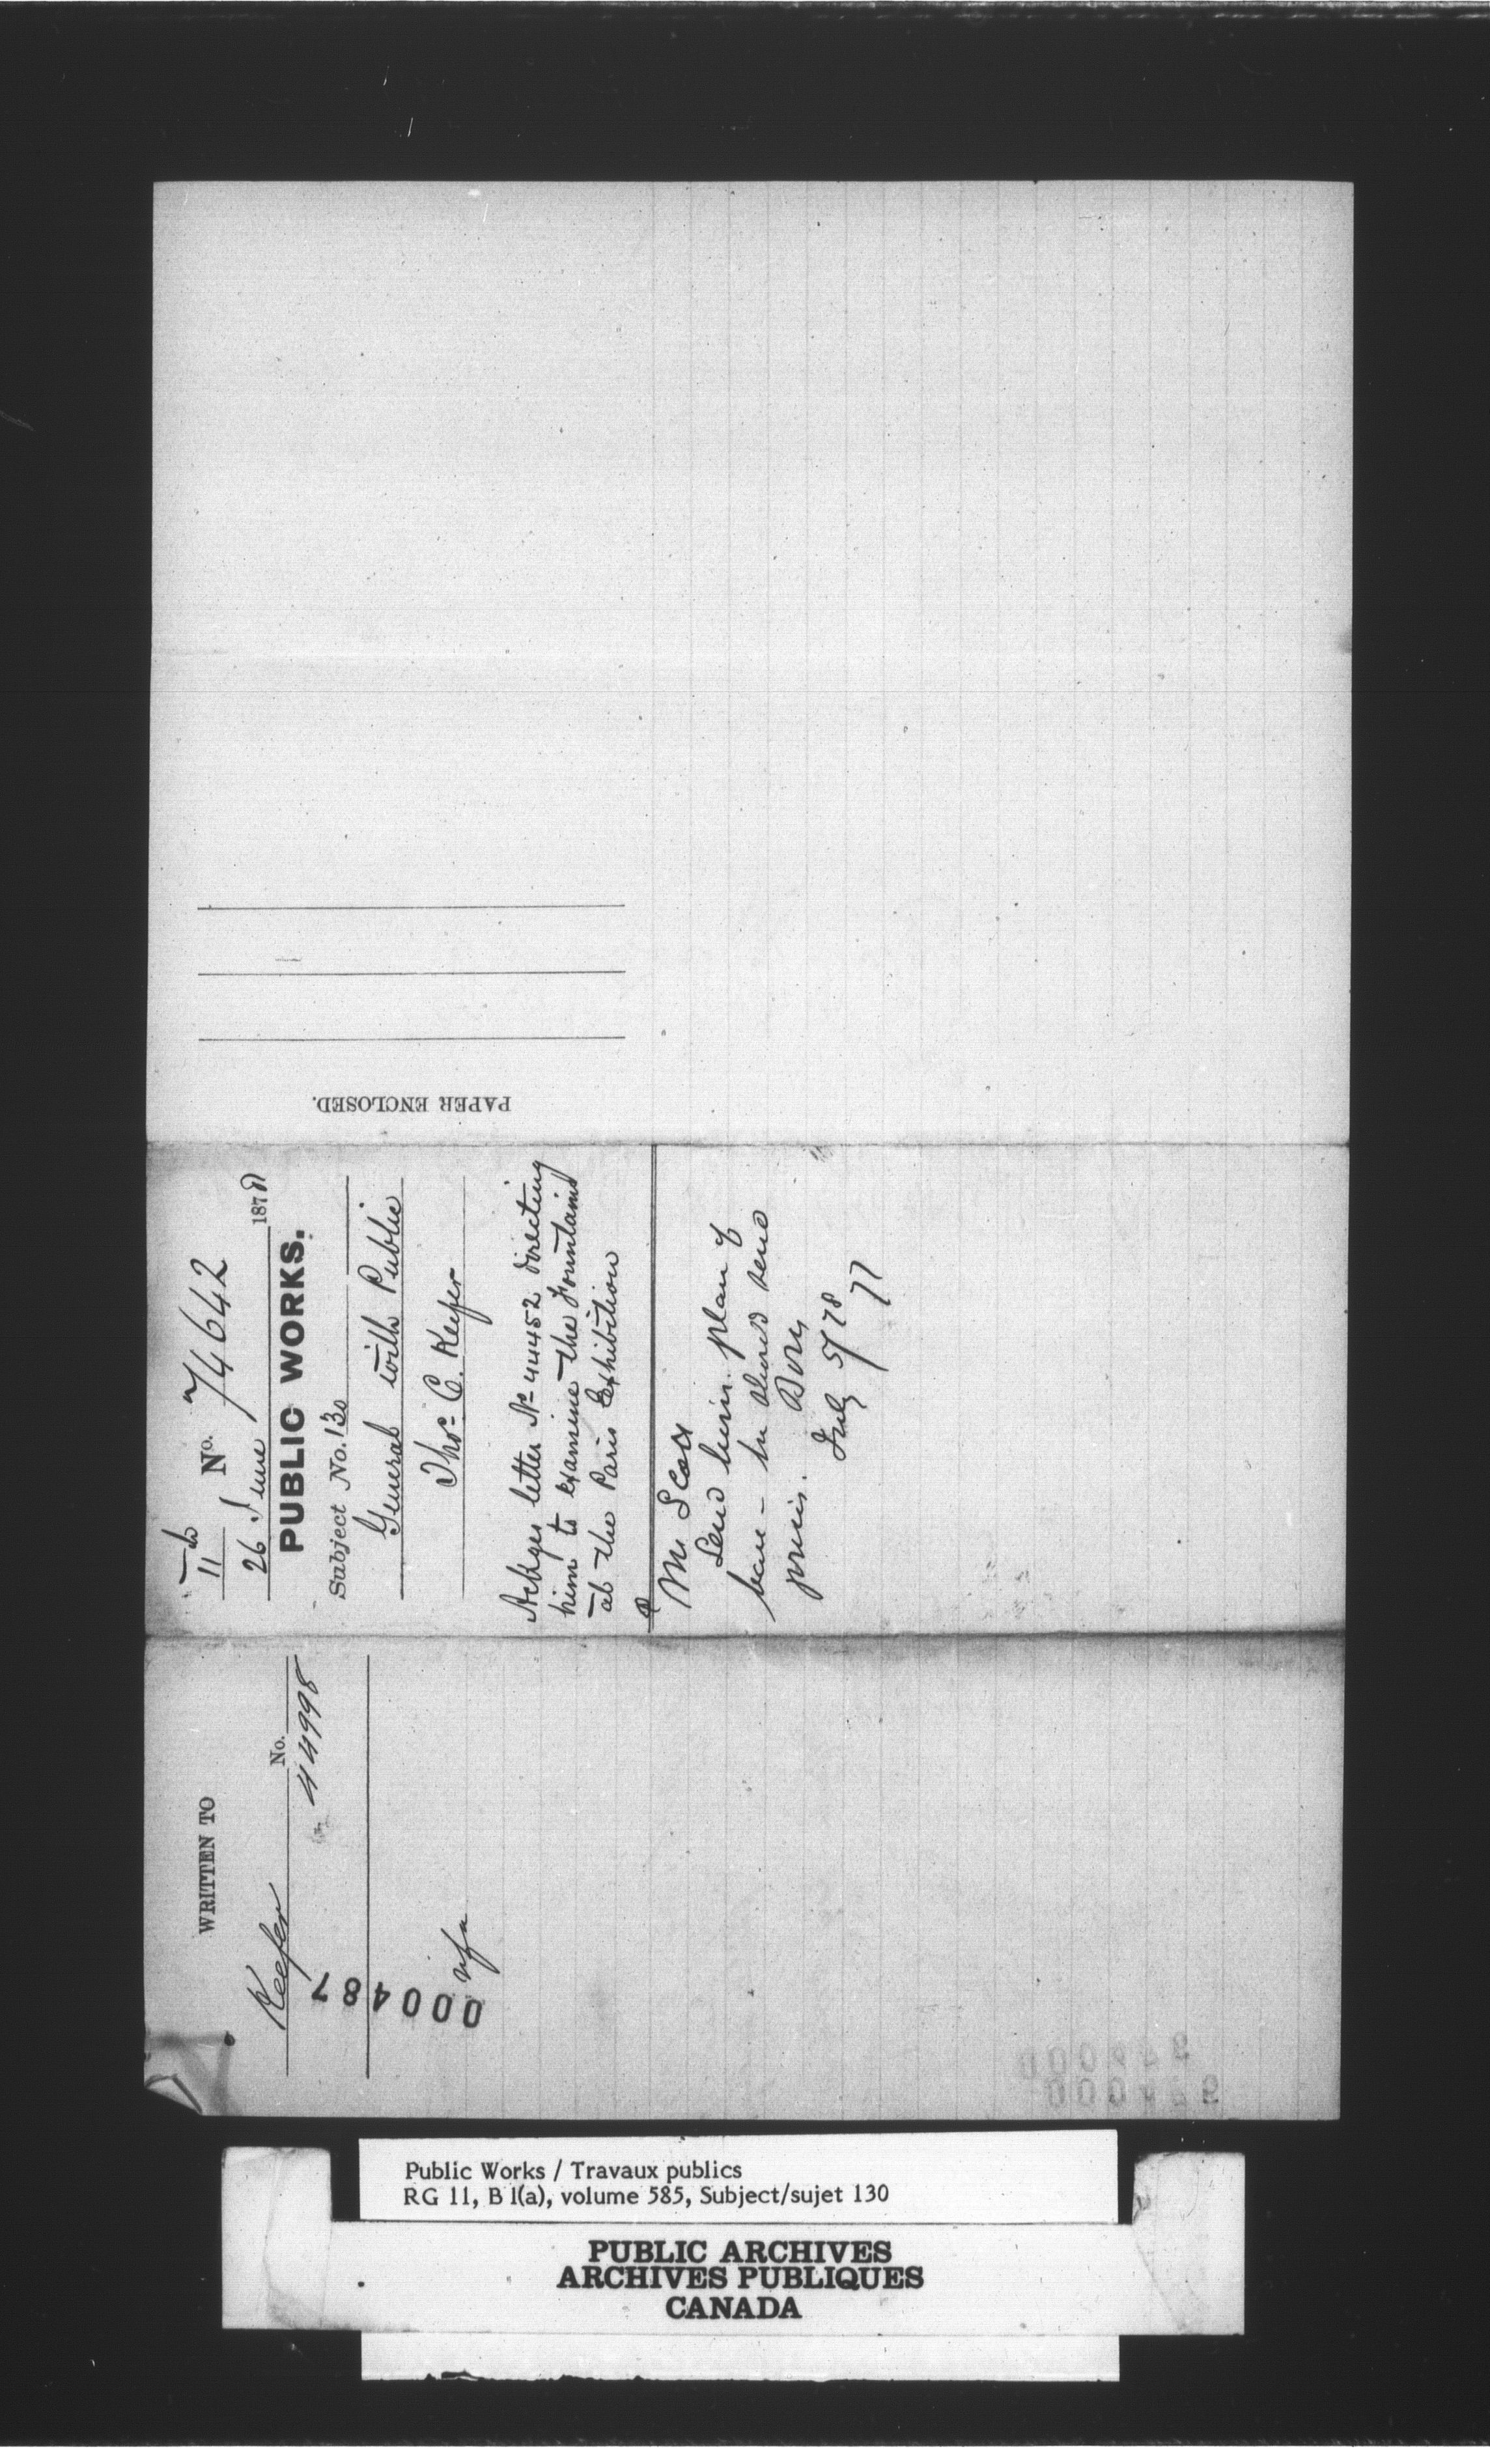 WRITTEN TO
Keefer No.
44998
000487
nfa
11 No. 74642
26 June 1878
PUBLIC WORKS.
Subject No. 130
General with Public
Thos. C. Keefer
Ackges letter No 44452 directing
him to examine the Fountains
at the Paris Exhibition
Mr Scott
Send him plan of
prices.
July 5/78
PAPER ENCLOSED.
Public Works / Travaux publics
RG 11, B 1(a), volume 585, Subject/sujet 130
PUBLIC ARCHIVES
ARCHIVES PUBLIQUES
CANADA